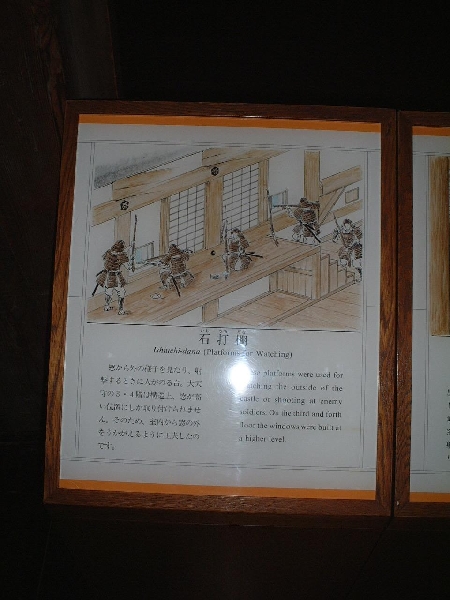 石打棚
Ishiuchi-dana (Platforms for Watching)
窓から外の様子を見たり、射
撃するときに人がのる台。大天
守の3・4階は構造上、窓が高
い位置にしか取り付けられませ
ん。そのため、室内から窓の外
をうかがえるように工夫したの
です。
platforms were used for
the outside of the
castle or shooting at enemy
soldiers. On the third and forth
floor the windows were built at
a higher level.